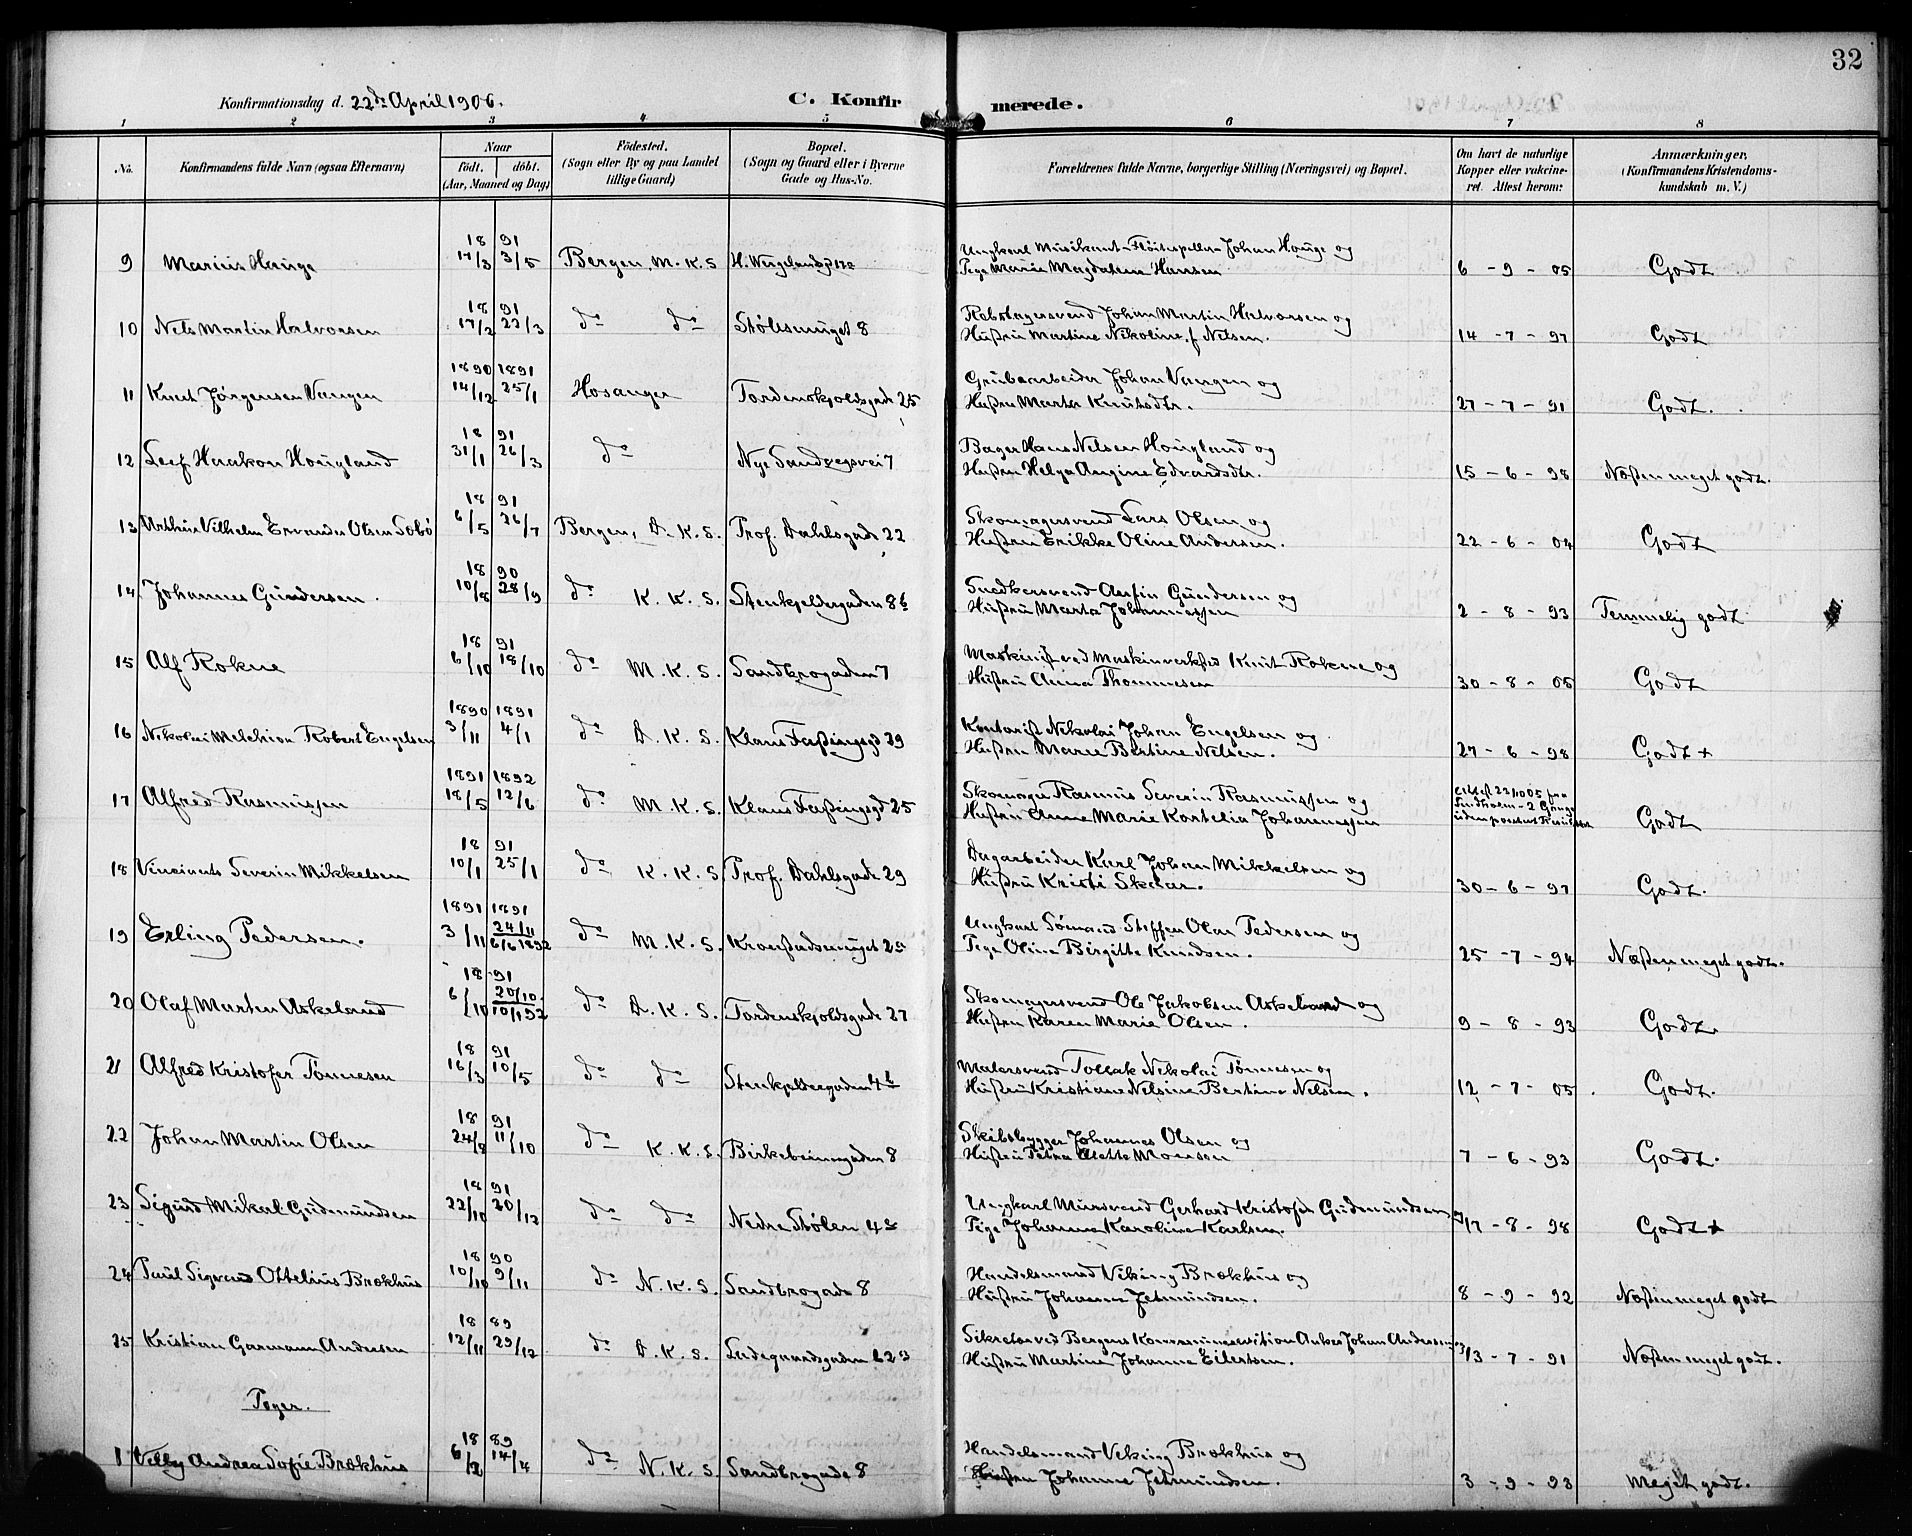 32
Konfirmationsdag d. 22de April 1906.
C. Konfirmerede.
1 2 3 4 5 6 7 8
No.
Konfirmandens fulde Navn (ogsaa Efternavn)
Naar
født. døbt.
(Aar, Maaned og Dag)
Fødested.
(Sogn eller By og paa Landet
tillige Gaard)
Bopæl.
(Sogn og Gaard eller i Byerne
Gade og Hus-No.
Forældrenes fulde Navne, borgerlige Stilling (Næringsvei) og Bopæl.
Om havt de naturlige
Kopper eller vaccine-
ret. Attest herom:
Anmærkninger.
(Konfirmandens Kristendoms-
kundskab m. V.)
18 91
9 Marius Hauge 14/3 3/5 Bergen, M. K. S
Ungkarl Musikant - Fløitespiller Johan Hauge og
Pige Marie Magdalene Hansen 6 - 9 - 05 Godt
18 91
10 Nels Martin Halvorsen 17/2 22/3 do do Stølesmuget 8
Rebslagersvend Johan Martin Halvorsen og
Hustru Martine Nikoline f Nelsen. 14 - 7 - 97 Godt
1890 1891
11 Knut Jørgensen Vangen 14/12 25/1 Hosanger Tordenskjoldsgade 25
Grubearbeider Johan Vangen og
Hustru Marta Knutsdtr. 27 - 7 - 91 Godt.
18 91
12 Leif Haakon Hougland 31/1 26/3 do Nye Sandvegsvei 7
Bager Hans Nelsen Hougland og
Hustru Helga Angine Edvardsdtr. 15 - 6 - 98 Næsten meget godt.
18 91
13 Arthur Vilhelm Evander Olsen Sæbø 6/5 26/7 Bergen, D. K. S. Prof. Dahlsgade 22
Skomagersvend Lars Olsen og
Hustru Erikke Oline Andersen. 22 - 6 - 04 Godt
18 90
14 Johannes Gundersen. 10/8 28/9 do K. K. S. Stenkjeldergaden 8b
Snedkersvend Anfin Gundersen og
Hustru Marta Johannessen 2 - 8 - 93 Temmelig godt
18 91
15 Alf Rokne 6/10 18/10 do M. K. S. Sandbrogaden 7
Maskinist ved Maskinverksted Knut Rokne og
Hustru Anna Thommesen 30 - 8 - 05 Godt
1890 1891
16 Nikolai Melchior Robert Engelsen 3/11 4/1 do D. K. S. Klaus Fastingsgd 29
Kontorist Nikolai Johan Engelsen og
Hustru Marie Bertine Nelsen. 27 - 6 - 98 Godt +
1891 1892
17 Alfred Rasmussen 18/5 12/6 do M. K. S. Klaus Fastingsgd 25
Skomager Rasmus Severin Rasmussen og
Hustru Anne Marie Kornelia Johannessen
Godt
18 91
18 Vincents Severin Mikkelsen 10/1 25/1 do K. K. S. Prof. Dahlsgade 29
Dagarbeider Karl Johan Mikkelsen og
Hustru Kristi Skaar. 30 - 6 - 97 Godt.
1891 1891
19 Erling Pedersen. 3/11 24/11 do M. K. S. Kroenstadsmuget 25
6/6 1892
Ungkarl Sømand Steffen Olai Pedersen og
Pige Olina Birgitte Knudsen. 25 - 7 - 94 Næsten meget godt.
18 91
20 Olaf Marten Askeland 6/10 20/10 do D. K. S. Tordenskjoldsgade 27
10/1 92
Skomagersvend Ole Jakobsen Askeland og
Hustru Karen Marie Olsen. 9 - 8 - 93 Godt.
18 91
21 Alfred Kristofer Tønnesen 16/3 10/5 do do Stenkjeldergaden 4b
Malersvend Tollak Nikolai Tønnesen og
Hustru Kristiane Nelsine Bertine Nelsen. 12 - 7 - 05 Godt.
18 91
22 Johan Martin Olsen 24/8 11/10 do K. K. S. Birkebeinergaden 8
Skibsbygger Johannes Olsen og
Hustru Petra Alette Monsen 7 - 6 - 93 Godt.
18 91
23 Sigurd Mikal Gudmundsen 22/10 20/12 do do Nedre Stølen 4a
Ungkarl Mursvend Gerhard Kristofer Gudmundsen og
Pige Johanna Karoline Karlsen. 17 - 8 - 98 Godt +
18 90
24 Paul Sigvard Ottelius Brækhus 10/10 9/11 do N. K. S. Sandbrogade 8
Handelsmand Viking Brækhus og
Hustru Johanna Jetmundsen. 8 - 9 - 92 Næsten meget godt
18 89
25 Kristian Garmann Andersen 12/11 29/12 do D. K. S. Ladegaardsgaden 623
Sekretær ved Bergens Anker Johan Andersen og
Hustru Martine Johanne Eilertsen. 13 - 7 - 91 Næsten meget godt.
Piger.
18 89
1 Velly Andrea Sofie Brækhus 6/2 14/4 do N. K. S. Sandbrogade 8
Handelsmand Viking Brækhus og
Hustru Johanne Jetmundsen. 3 - 9 - 93 Meget godt.